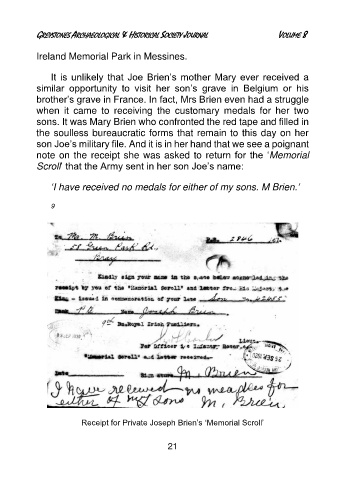 GREYSTONES ARCHAEOLOGICAL & HISTORICAL SOCIETY JOURNAL VOLUME 8
Ireland Memorial Park in Messines.
It is unlikely that Joe Brien's mother Mary ever received a
similar opportunity to visit her son's grave in Belgium or his
brother's grave in France. In fact, Mrs Brien even had a struggle
when it came to receiving the customary medals for her two
sons. It was Mary Brien who confronted the red tape and filled in
the soulless bureaucratic forms that remain to this day on her
son Joe's military file. And it is in her hand that we see a poignant
note on the receipt she was asked to return for the 'Memorial
Scroll' that the Army sent in her son Joe's name:
'I have received no medals for either of my sons. M Brien.'
9
To Mrs. M. Brien
58 Green Park Rd.
Bray
Kindly sign your name in the space below acknowledging the
receipt by you of the "Memorial Scroll" and Letter from His Majesty the
King - issued in commemoration of your late Son
Rank Name Joseph Brien
9th Bn. Royal Irish Fusiliers.
Lieut.
For Officer i/c Infantry Records
"Memorial Scroll" and Letter received.
Date Signature M. Brien
I have received no meadles for
either of my sons M. Brien.
Receipt for Private Joseph Brien's 'Memorial Scroll'
21